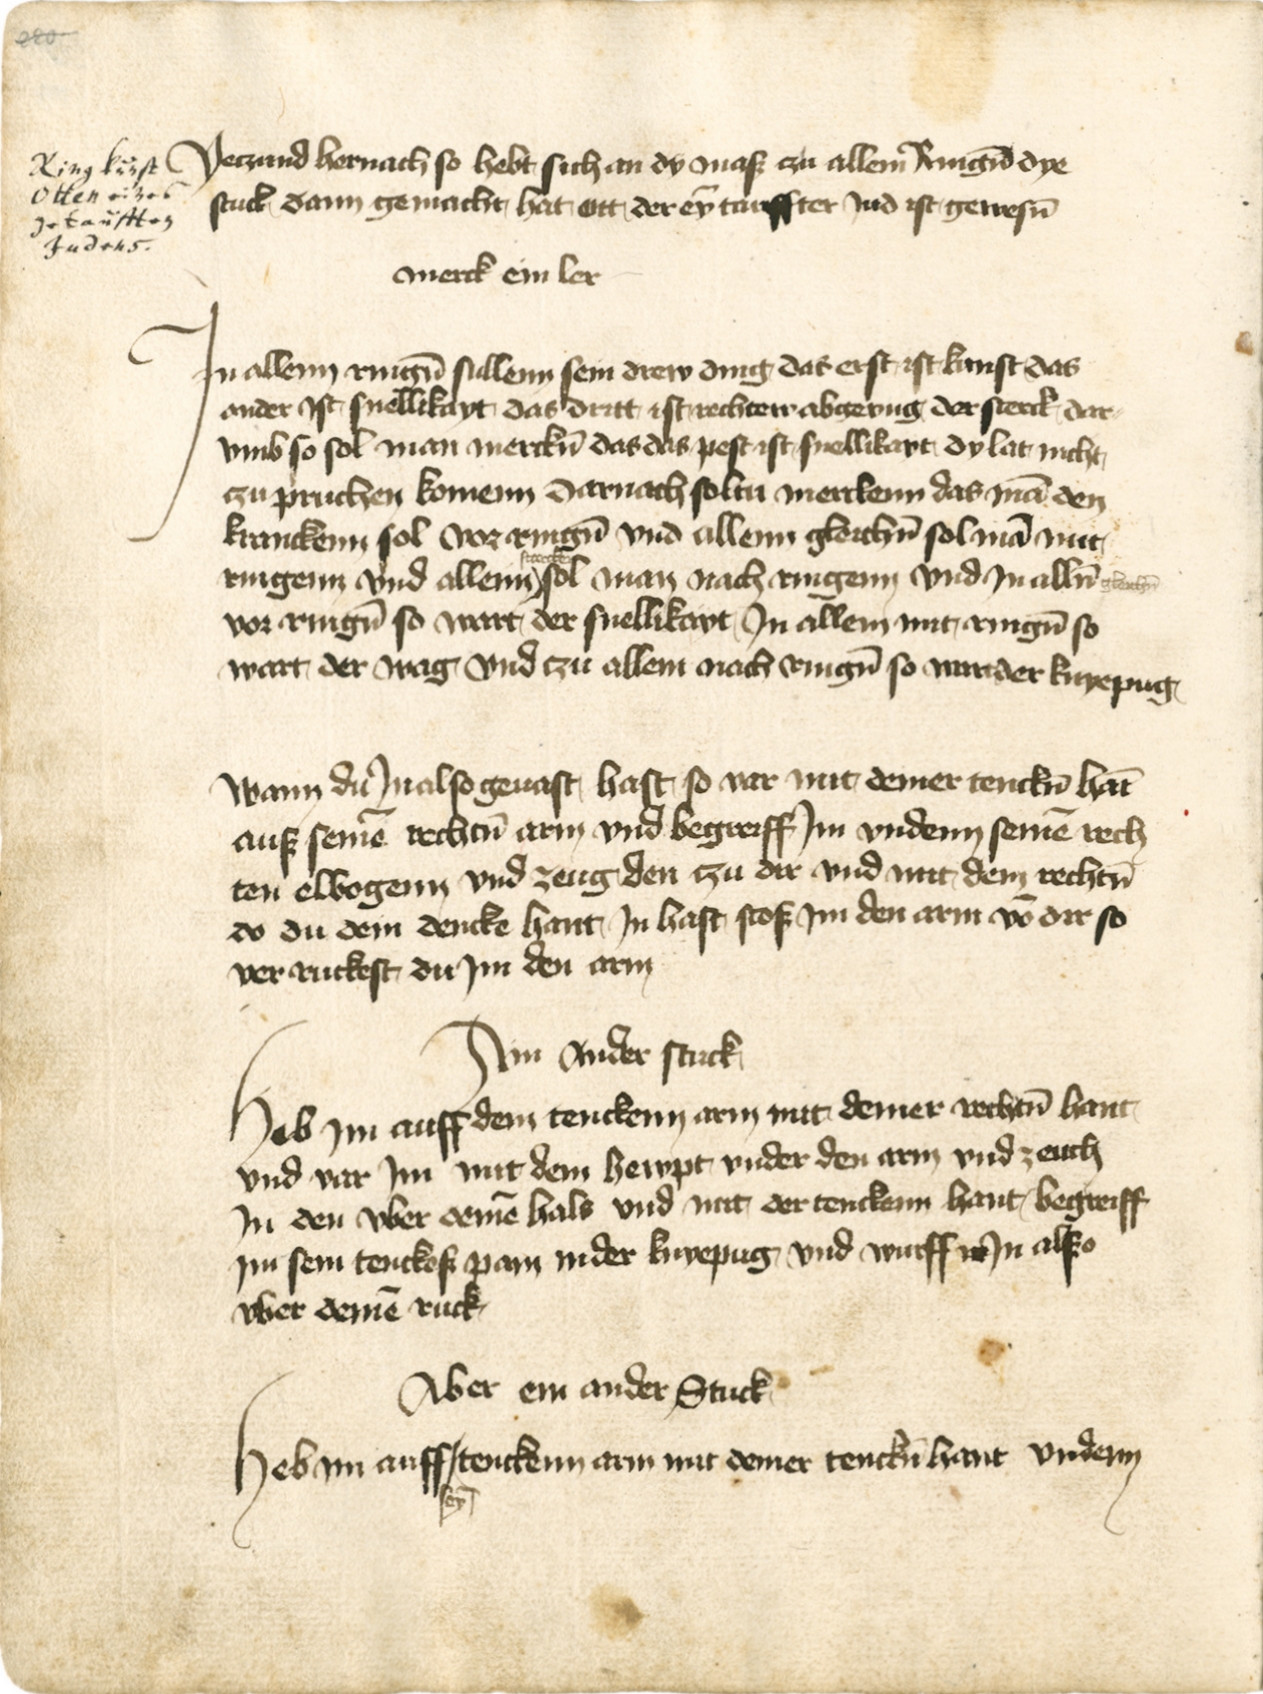 280
Ring kunst
Otten eines
getaufften
Judens.
Yeczund hernach so hebt sich an dy mass czu allem Ringn̄ dye
stuck dann gemacht hat ott der eȳ tauffter Jud ist gewesn̄
Merck ein ler
In allenn ringn̄ sullenn sein drew ding das erst ist kunst das
ander ist snellikayt das dritt ist rechter abgezug der sterck dar
vmb so sol man merckn̄ das das pest ist snellikayt dy lat nicht
czu pruchen komenn Darnach soltu merckenn das mā den
kranckenn sol vor ringn̄ vnd allenn gleichn̄ sol mā mit
ringenn vnd allenn starcken sol man nach ringenn vnd In alln̄ gleichn̄
vor ringn̄ so wart der snellikayt In allem mit ringn̄ so
wart der wag vnd czu allem nach ringn̄ so wart der knyepug
Wann du In also geuast hast so var mit deiner tenckn̄ hāt
auß seinē rechtn̄ arm vnd begreiff Im vndenn seinē rech
ten elbogenn vnd zeug den czu dir vnd mit dem rechtn̄
do du dein dencke hant In hast stoß Im den arm vō dir so
ver ruckest du Im den arm
Ain Ander stuck
Heb Im auff dem tenckenn arm mit deiner rechtn̄ hant
vnd var Im mit dem hewpt vnder den arm vnd zeuch
In den vber deinē hals vnd mit der tenckenn hant begreiff
Im sein tenckeß pain In der knyepug vnd wurff In alßo
vber deinē ruck
Aber ein ander Stuck
Heb im auff seȳ tenckenn arm mit deiner tenckn̄ hant vndenn